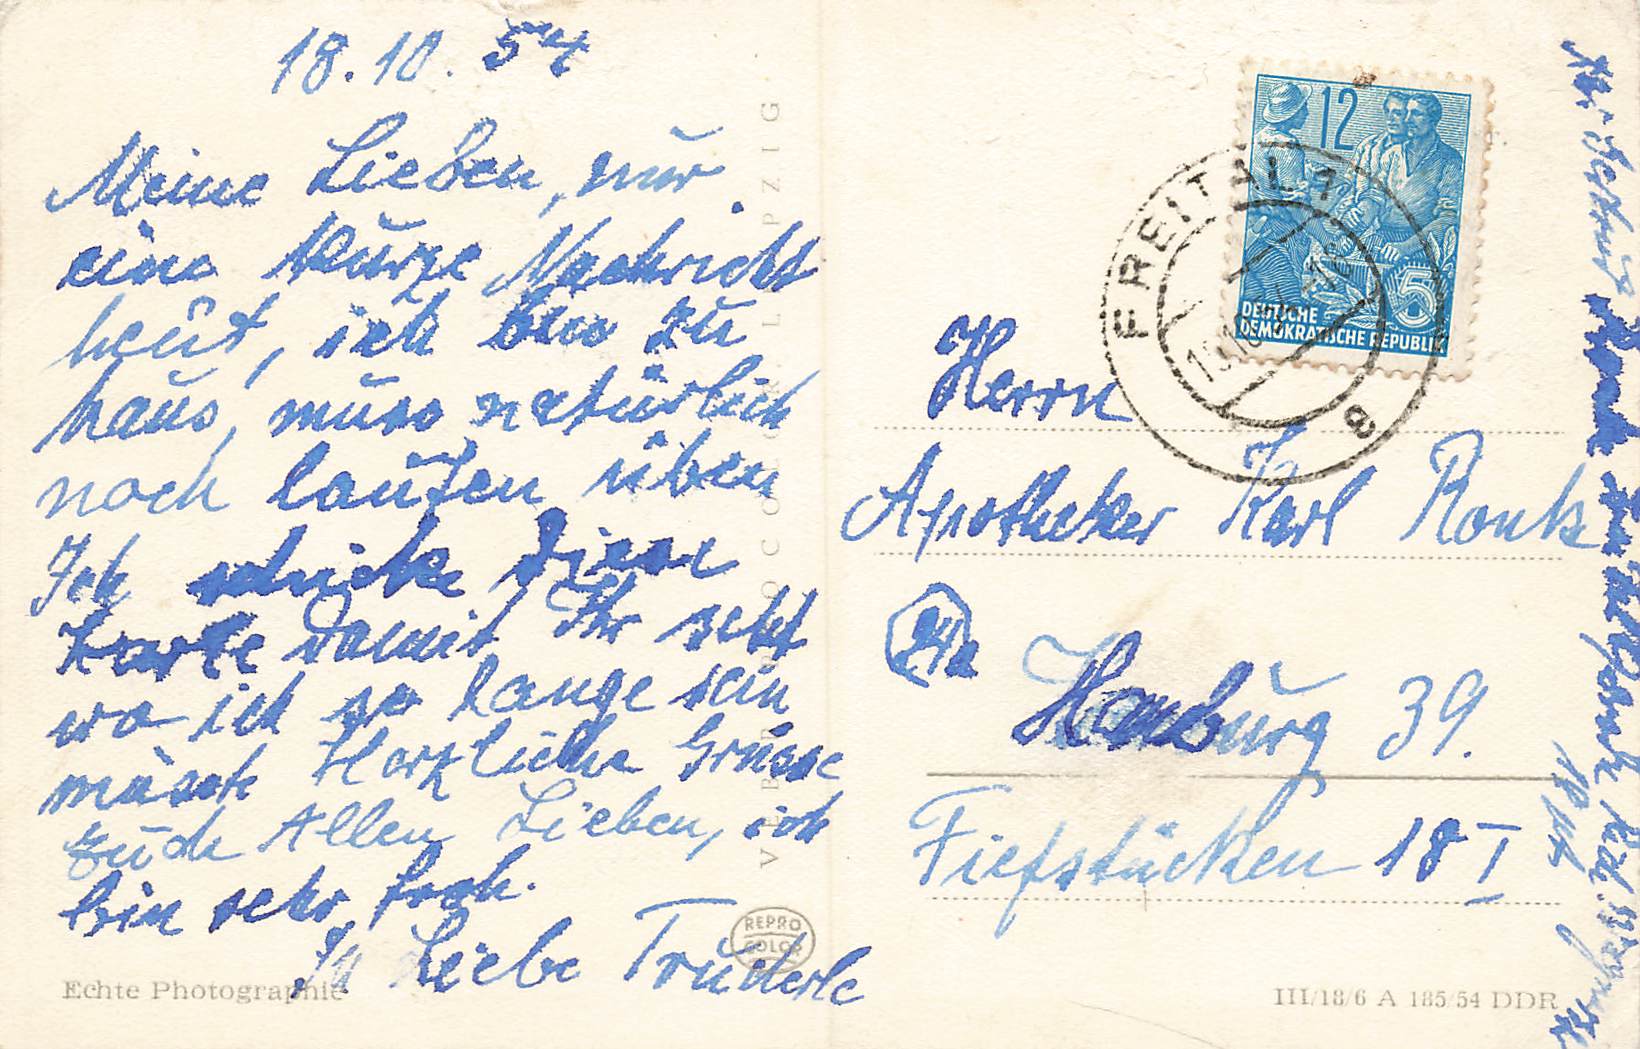 18.10.54
Meine Lieben, nur
eine kurze Nachricht
heut, ich bin zu
haus, muss natürlich
noch laufen üben
Ich schicke diese
Karte damit Ihr seht
wo ich so lange sein
musste Herzliche Grüsse
Euch Allen Lieben, ich
bin sehr froh.
In Liebe Truderle
Echte Photographie
REPRO
COLOR
12
5
DEUTSCHE
DEMOKRATISCHE REPUBLIK
FREITAL 1
a
Herrn
Apotheker Karl Ronks
24a
Hamburg 39.
Fiefstücken 18 I
III/18/6 A 185/54 DDR